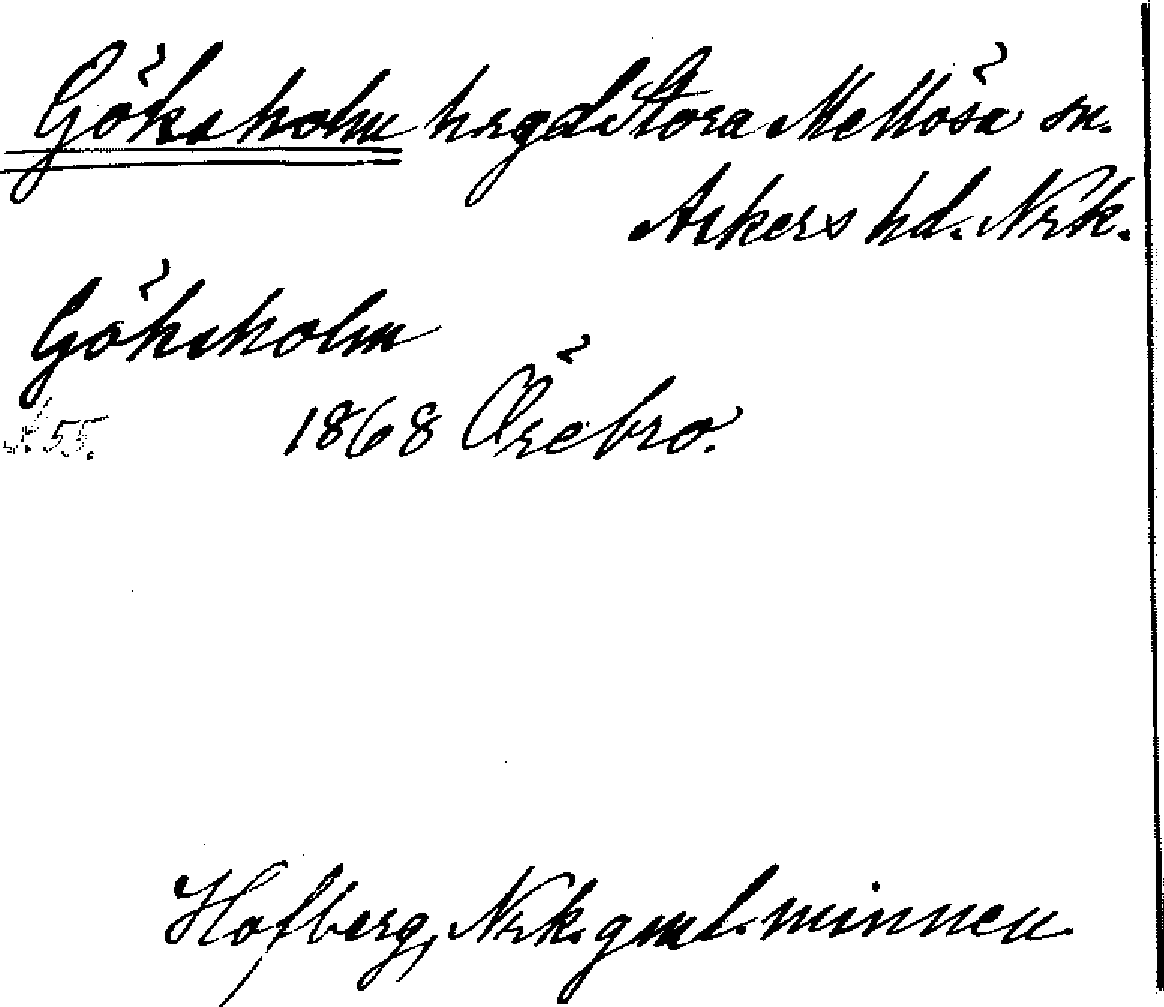 Göksholm hrgd Stora Mellösa sn.
Askers hd. Nrk.
Göksholm
S. 55. 1868 Örebro.
Hofberg, Nrk. gml. minnen.